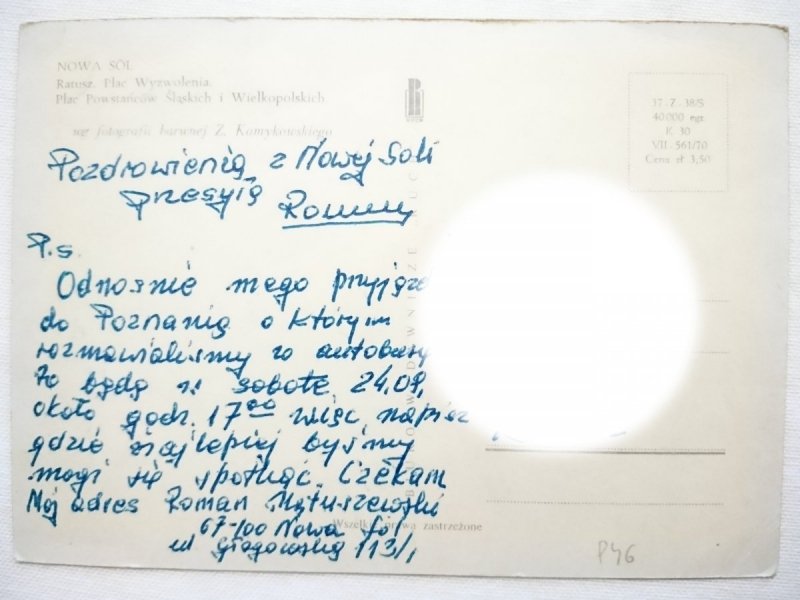 NOWA SÓL
Ratusz. Plac Wyzwolenia.
Plac Powstańców Śląskich i Wielkopolskich
wg fotografii barwnej Z. Kamykowskiego
37-Z-38/S
40 000 egz.
K 30
VII-561/70
Cena zł 3,50
Pozdrowienia z Nowej Soli
przesyła
Roman
P.s
Odnośnie mego
do Poznania o którym
rozmawialiśmy w
to będę w sobotę 24.09.
około godz. 17 00 więc
gdzie najlepiej byśmy
mogli się spotkać. Czekam
Mój adres Roman Matuszewski
67-100 Nowa Sól
ul Głogowska 113/1
Wszelkie prawa zastrzeżone
P46